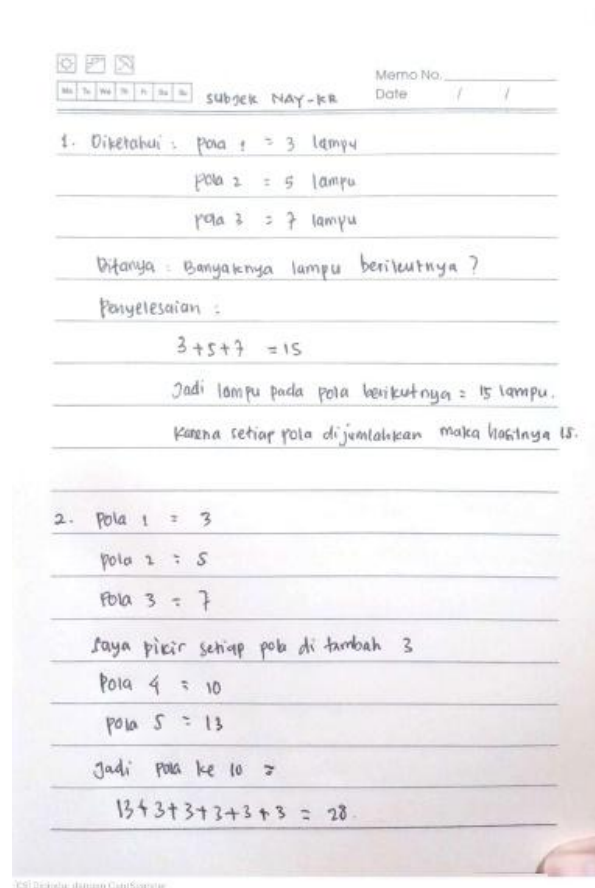 Memo No.
Mo Tu We Th Fr Sa Su
Date / /
Subjek NAY-KR
1. Diketahui : pola 1 = 3 lampu
pola 2 = 5 lampu
pola 3 = 7 lampu
Ditanya : Banyaknya lampu berikutnya ?
Penyelesaian :
3+5+7 = 15
Jadi lampu pada pola berikutnya = 15 lampu.
Karena setiap pola dijumlahkan maka hasilnya 15.
2. Pola 1 = 3
Pola 2 = 5
Pola 3 = 7
Saya pikir setiap pola di tambah 3
Pola 4 = 10
Pola 5 = 13
Jadi Pola ke 10 =
13+3+3+3+3+3 = 28.
CS Dipindai dengan CamScanner